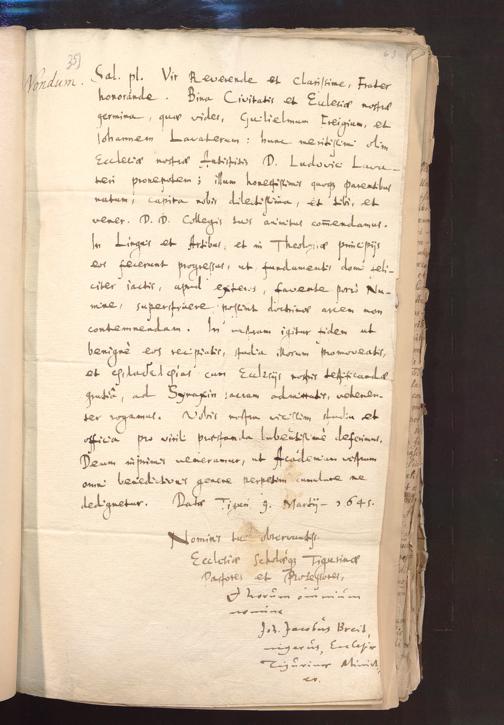 351
63
Nondum.
Sal. pl. Vir Reverende et clarissime, Frater
honorande. Bina Civitatis et Ecclesiæ nostræ
germina, quæ vides, Guilielmum Freigium, et
Johannem Lavaterum: hunc meritissimi olim
Ecclesiæ nostræ Antistitis D. Ludovici Lava-
teri pronepotem; illum honestissimis quoq3 parentibus
natum; capita nobis dilectissima, et tibi, et
vener. D. D. Collegis tuis animitus com̄endamus.
In Linguis et Artibus, et in Theologiæ principijs
eos fecerunt progressus, ut fundamentis domi feli-
citer iactis, apud exteros, favente porrò Nu-
mine, superstruere possint doctrinæ arcem non
contemnendam. In vestram igitur fidem ut
benignè eos recipiatis, studia illorum promoveatis,
et cum Ecclesijs nostris testificandæ
gratiâ, ad Synaxin sacram admittatis, vehemen-
ter rogamus. Vobis nostra vicissim studia et
officia pro virili præstanda lubentissimè deferimus.
Deum inprimis veneramur, ut Academiam vestram
omni benedictionis genere perpetim cumulare ne
dedignetur. Datæ Tiguri 9. Martij 1645.
Nominis tui observantiss.
Ecclesiæ Scholæq3 Tigurinæ
Pastores et Professores,
et horum omnium
nomine
Joh. Jacobus Breit,
ingerus, Ecclesiæ
Tigurinæ Minist,
er.